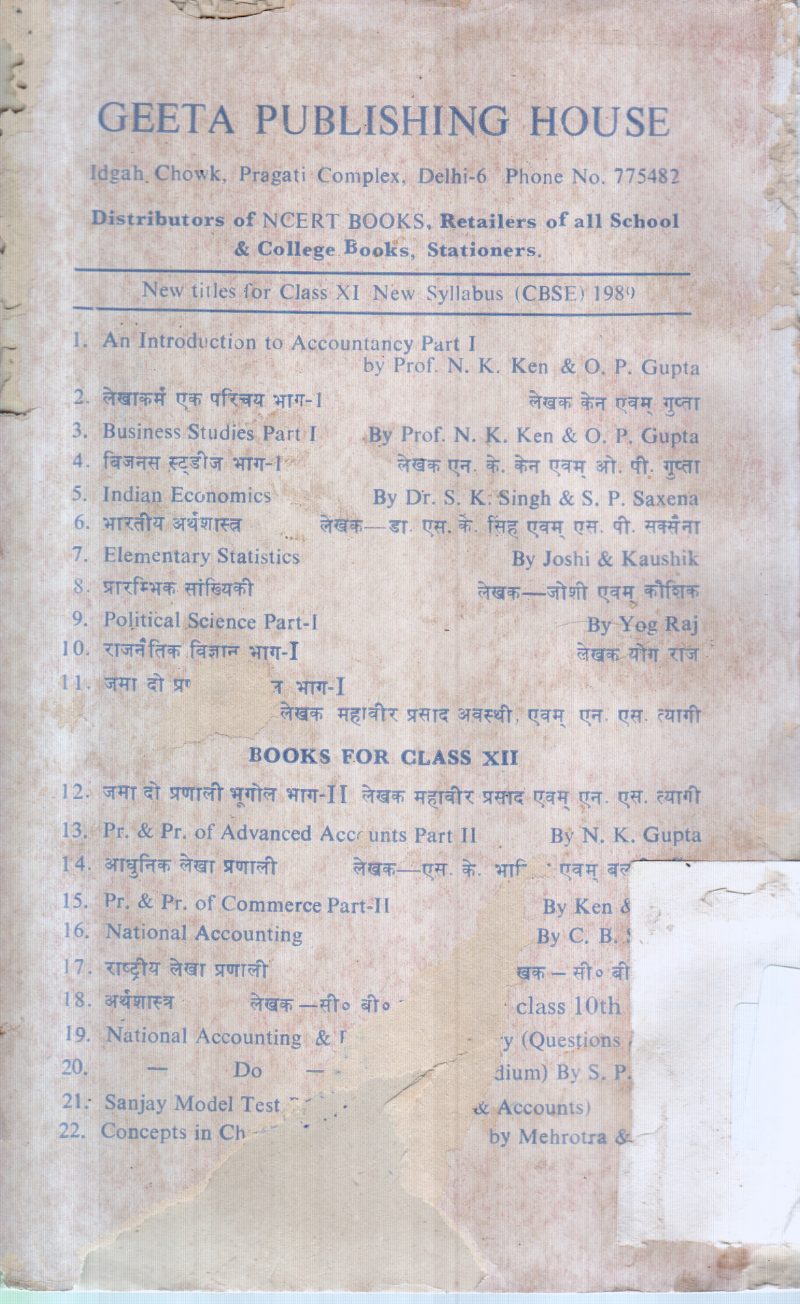 GEETA PUBLISHING HOUSE
Idgah Chowk, Pragati Complex, Delhi-6 Phone No. 775482
Distributors of NCERT BOOKS, Retailers of all School
& College Books, Stationers.
New titles for Class XI New Syllabus (CBSE) 1989
1. An Introduction to Accountancy Part I
by Prof. N. K. Ken & O. P. Gupta
2. लेखाकर्म एक परिचय भाग-I लेखक केन एवम् गुप्ता
3. Business Studies Part I By Prof. N. K. Ken & O. P. Gupta
4. बिजनस स्टडीज भाग-I लेखक एन. के. केन एवम् ओ. पी. गुप्ता
5. Indian Economics By Dr. S. K. Singh & S. P. Saxena
6. भारतीय अर्थशास्त्र लेखक—डा. एस. के. सिंह एवम् एस. पी. सक्सैना
7. Elementary Statistics By Joshi & Kaushik
8. प्रारम्भिक सांख्यिकी लेखक—जोशी एवम् कौशिक
9. Political Science Part-I By Yog Raj
10. राजनैतिक विज्ञान भाग-I लेखक योग राज
11. जमा दो भाग-I
लेखक महावीर प्रसाद अवस्थी, एवम् एन. एस. त्यागी
BOOKS FOR CLASS XII
12. जमा दो प्रणाली भूगोल भाग-II लेखक महावीर प्रसाद एवम् एन. एस. त्यागी
13. Pr. & Pr. of Advanced Accounts Part II By N. K. Gupta
14. आधुनिक लेखा प्रणाली लेखक—एस. के. एवम्
15. Pr. & Pr. of Commerce Part-II By Ken &
16. National Accounting By C. B.
17. राष्ट्रीय लेखा प्रणाली सी० बी
18. अर्थशास्त्र लेखक—सी० बी० class 10th
19. National Accounting & (Questions
20. — Do — By S. P.
21. Sanjay Model Test & Accounts)
22. Concepts in by Mehrotra &